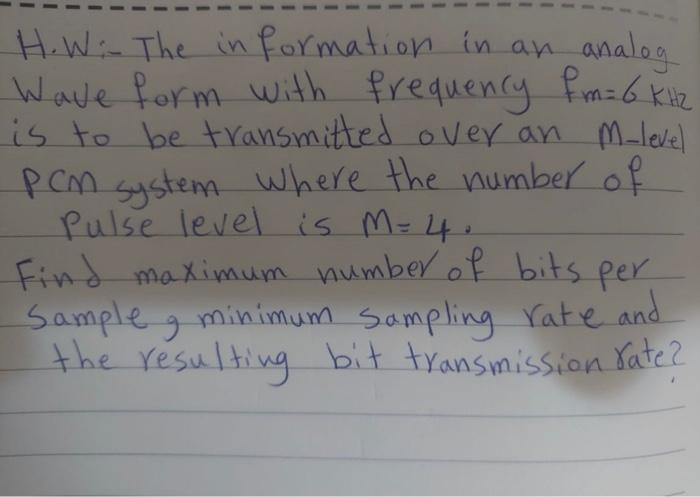 H.W:- The information in an analog
Wave form with frequency fm=6 KHz
is to be transmitted over an M-level
PCM system where the number of
Pulse level is M=4.
Find maximum number of bits per
Sample, minimum sampling rate and
the resulting bit transmission rate?